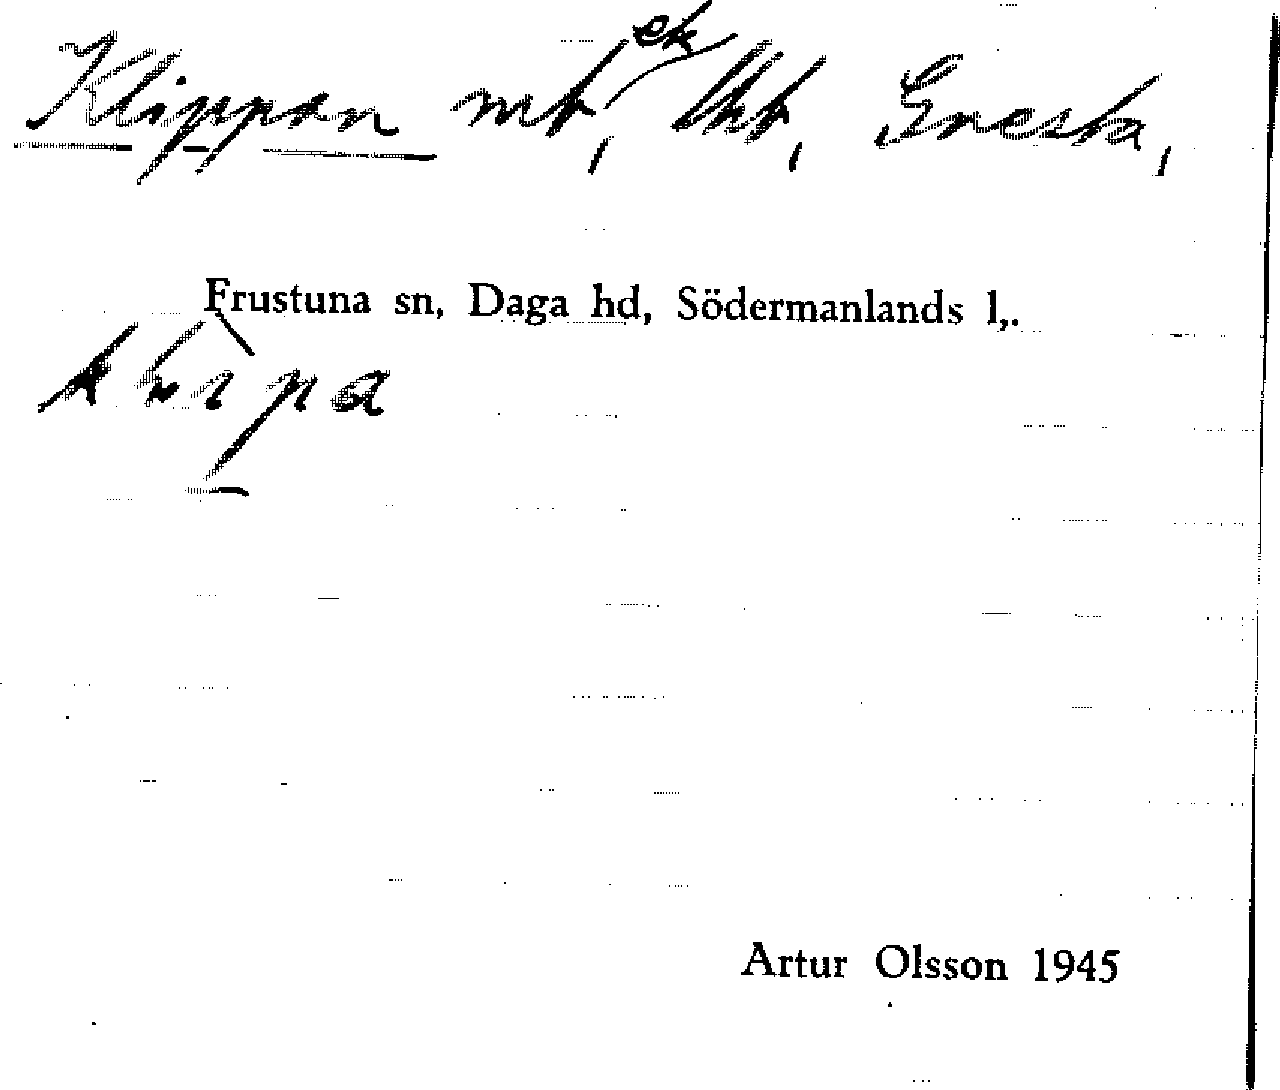 Klippan mt, ek lht, Gnesta,
Frustuna sn, Daga hd, Södermanlands l,.
Artur Olsson 1945